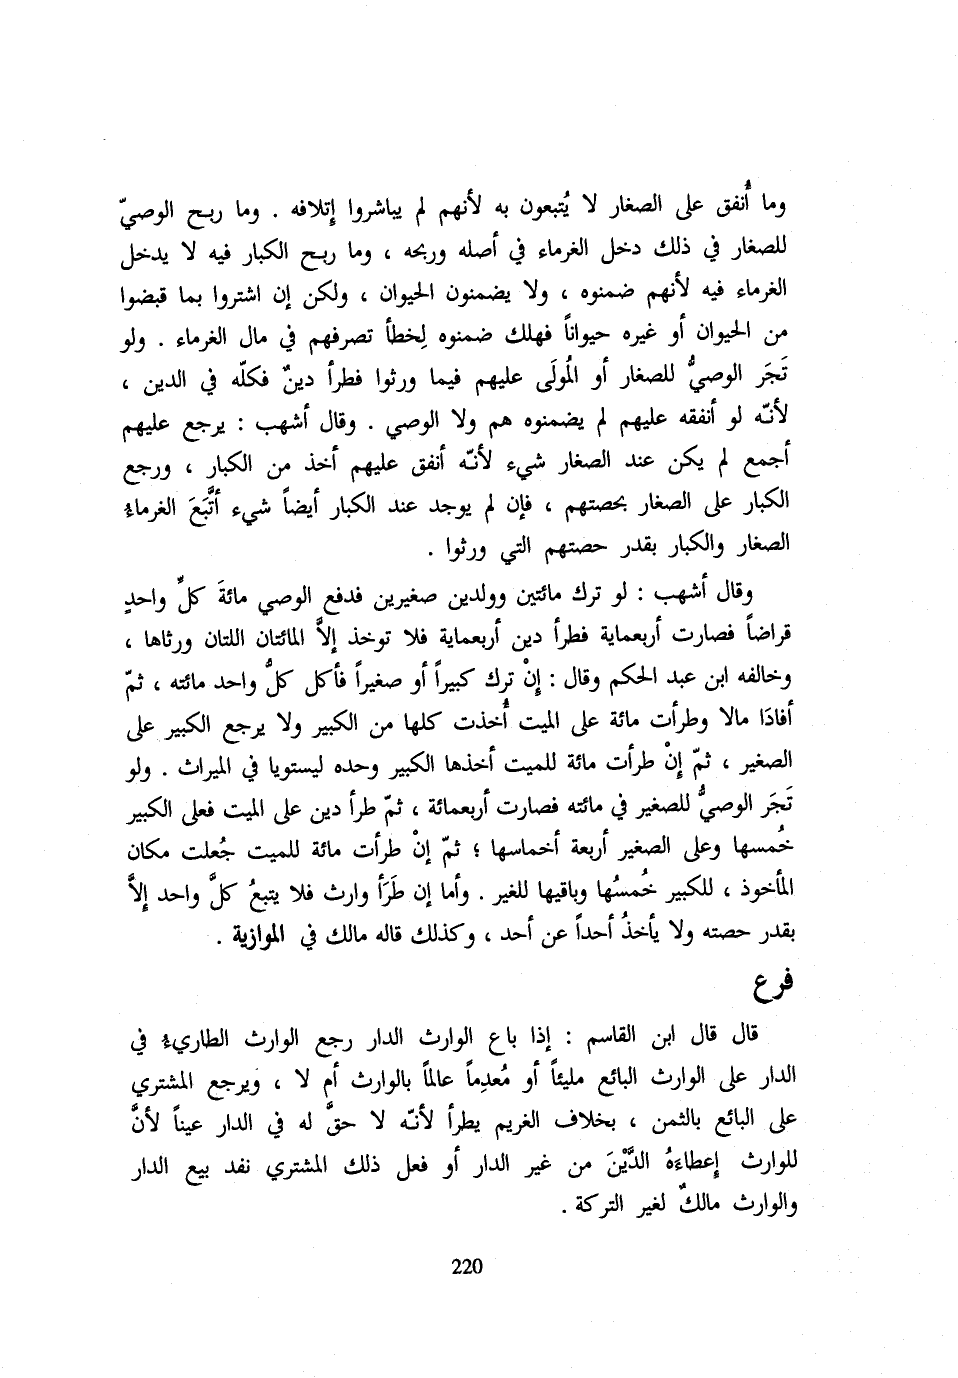 وما أُنفق على الصغار لا يُتبعون به لأنهم لم يباشروا إتلافه . وما ربح الوصيّ
للصغار في ذلك دخل الغرماء في أصله وربحه ، وما ربح الكبار فيه لا يدخل
الغرماء فيه لأنهم ضمنوه ، ولا يضمنون الحيوان ، ولكن إن اشتروا بما قبضوا
من الحيوان أو غيره حيواناً فهلك ضمنوه لِخطأ تصرفهم في مال الغرماء . ولو
تَجَر الوصيُّ للصغار أو المُولَى عليهم فيما ورثوا فطرأ دينٌ فكلّه في الدين ،
لأنّه لو أنفقه عليهم لم يضمنوه هم ولا الوصي . وقال أشهب : يرجع عليهم
أجمع لم يكن عند الصغار شيء لأنّه أنفق عليهم أخذ من الكبار ، ورجع
الكبار على الصغار بحصتهم ، فإن لم يوجد عند الكبار أيضاً شيء أتَّبَعَ الغرماءُ
الصغار والكبار بقدر حصتهم التي ورثوا .
وقال أشهب : لو ترك مائتين وولدين صغيرين فدفع الوصي مائةَ كلِّ واحدٍ
قراضاً فصارت أربعماية فطرأ دين أربعماية فلا توخذ إلاَّ المائتان اللتان ورثاها ،
وخالفه ابن عبد الحكم وقال : إنْ ترك كبيراً أو صغيراً فأكل كلُّ واحد مائته ، ثمّ
أفادَا مالا وطرأت مائة على الميت أُخذت كلها من الكبير ولا يرجع الكبير على
الصغير ، ثمّ إنْ طرأت مائة للميت أخذها الكبير وحده ليستويا في الميراث . ولو
تَجَر الوصيُّ للصغير في مائته فصارت أربعمائة ، ثمّ طرأ دين على الميت فعلى الكبير
خُمسها وعلى الصغير أربعة أخماسها ؛ ثمّ إنْ طرأت مائة للميت جُعلت مكان
المأخوذ ، للكبير خُمسُها وباقيها للغير . وأما إن طَرَأ وارث فلا يتبعُ كلَّ واحد إلاَّ
بقدر حصته ولا يأخذُ أحداً عن أحد ، وكذلك قاله مالك في الموازية .
فرع
قال قال ابن القاسم : إذا باع الوارث الدار رجع الوارث الطاريءُ في
الدار على الوارث البائع مليئاً أو مُعدِماً عالماً بالوارث أم لا ، ويرجع المشتري
على البائع بالثمن ، بخلاف الغريم يطرأ لأنّه لا حقَّ له في الدار عيناً لأنَّ
للوارث إعطاءهُ الدَّيْنَ من غير الدار أو فعل ذلك المشتري نفد بيع الدار
والوارث مالكٌ لغير التركة .
220